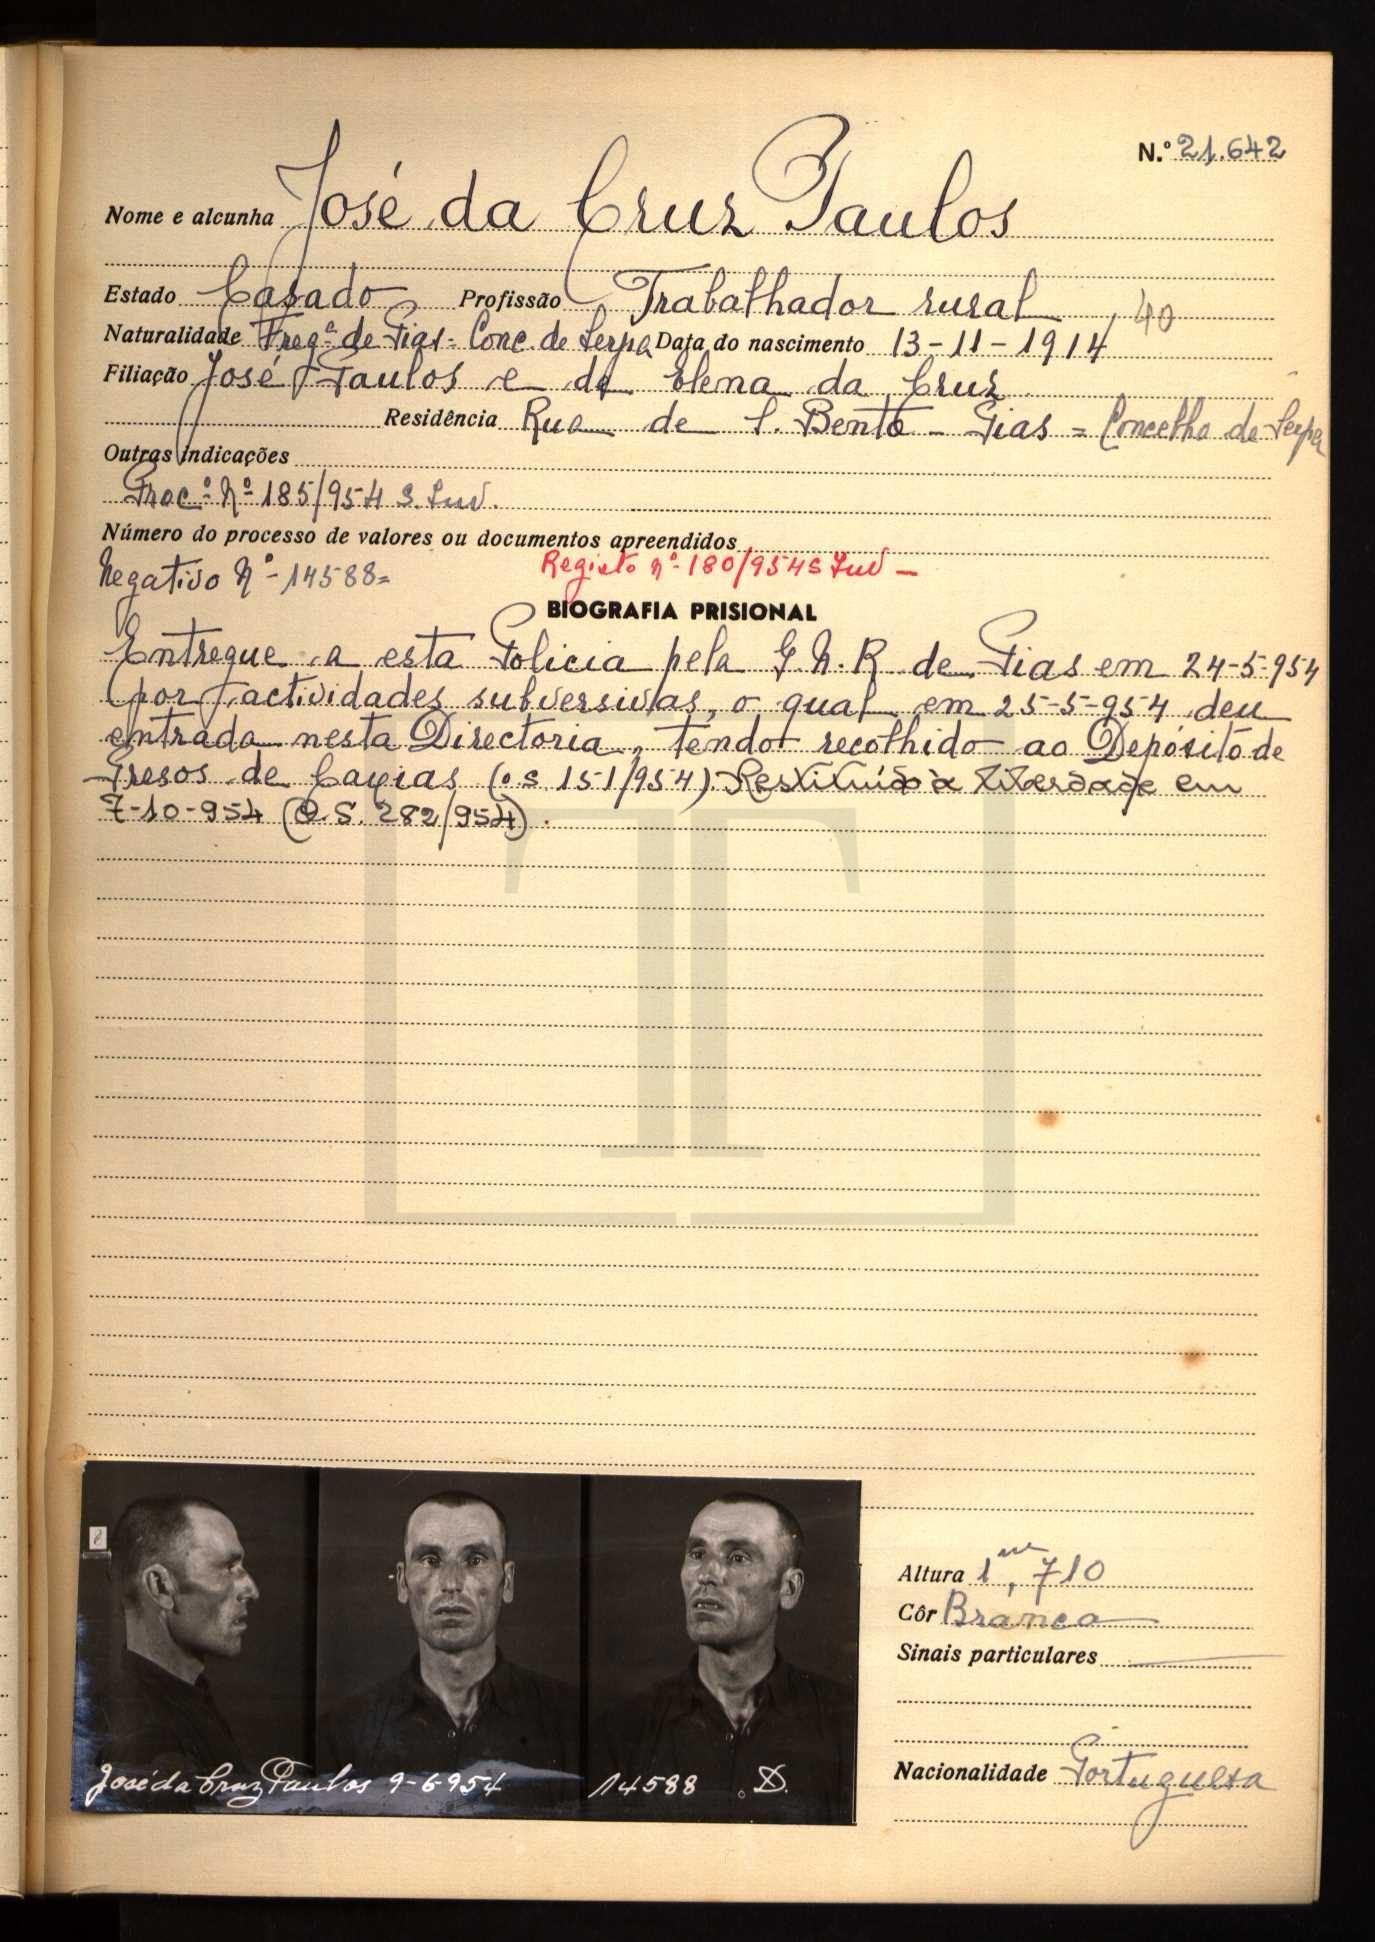 N.º 21.642
Nome e alcunha José da Cruz Paulos
Estado Casado Profissão Trabalhador rural, 40
Naturalidade Freg.ª de Pias - Conc. de Serpa Data do nascimento 13-11-1914
Filiação José Paulos e de Elena da Cruz
Residência Rua de S. Bento - Pias = Concelho de Serpa
Outras indicações
Proc.º Nº 185/954 S. Inv.
Número do processo de valores ou documentos apreendidos
Negativo Nº - 14588 = Registo nº - 180/954 S Inv -
BIOGRAFIA PRISIONAL
Entregue a esta Policia pela G.N.R. de Pias em 24-5-954
por actividades subversivas, o qual em 25-5-954 deu
entrada nesta Directoria, tendo recolhido ao Depósito de
Presos de Caxias (o.s. 151/954). Restituído à liberdade em
7-10-954 (O.S. 282/954).
8
José da Cruz Paulos 9-6-954 14588 D.
Altura 1m,710
Côr Branca
Sinais particulares
Nacionalidade Portuguesa